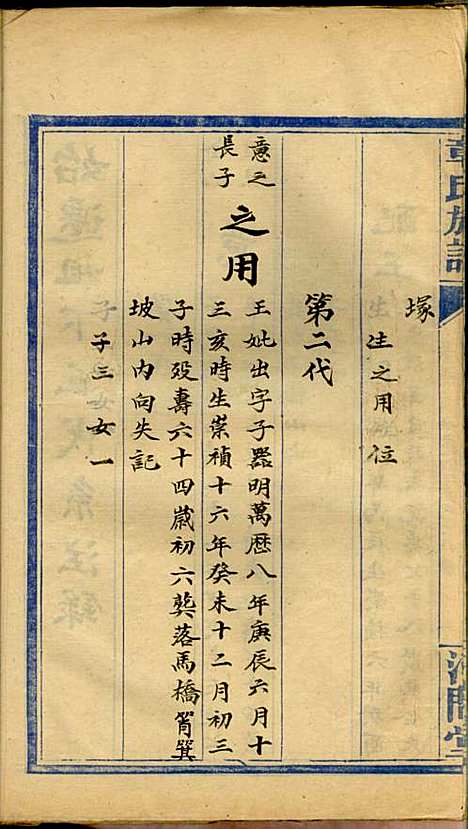 塚
生之用位
第二代
意之
長子
之用
王妣出字子器明萬歷八年庚辰六月十
三亥時生崇禎十六年癸未十二月初三
子時歿壽六十四歲初六葬落馬橋筲箕
坡山內向失記
子三女一
氏族譜
堂